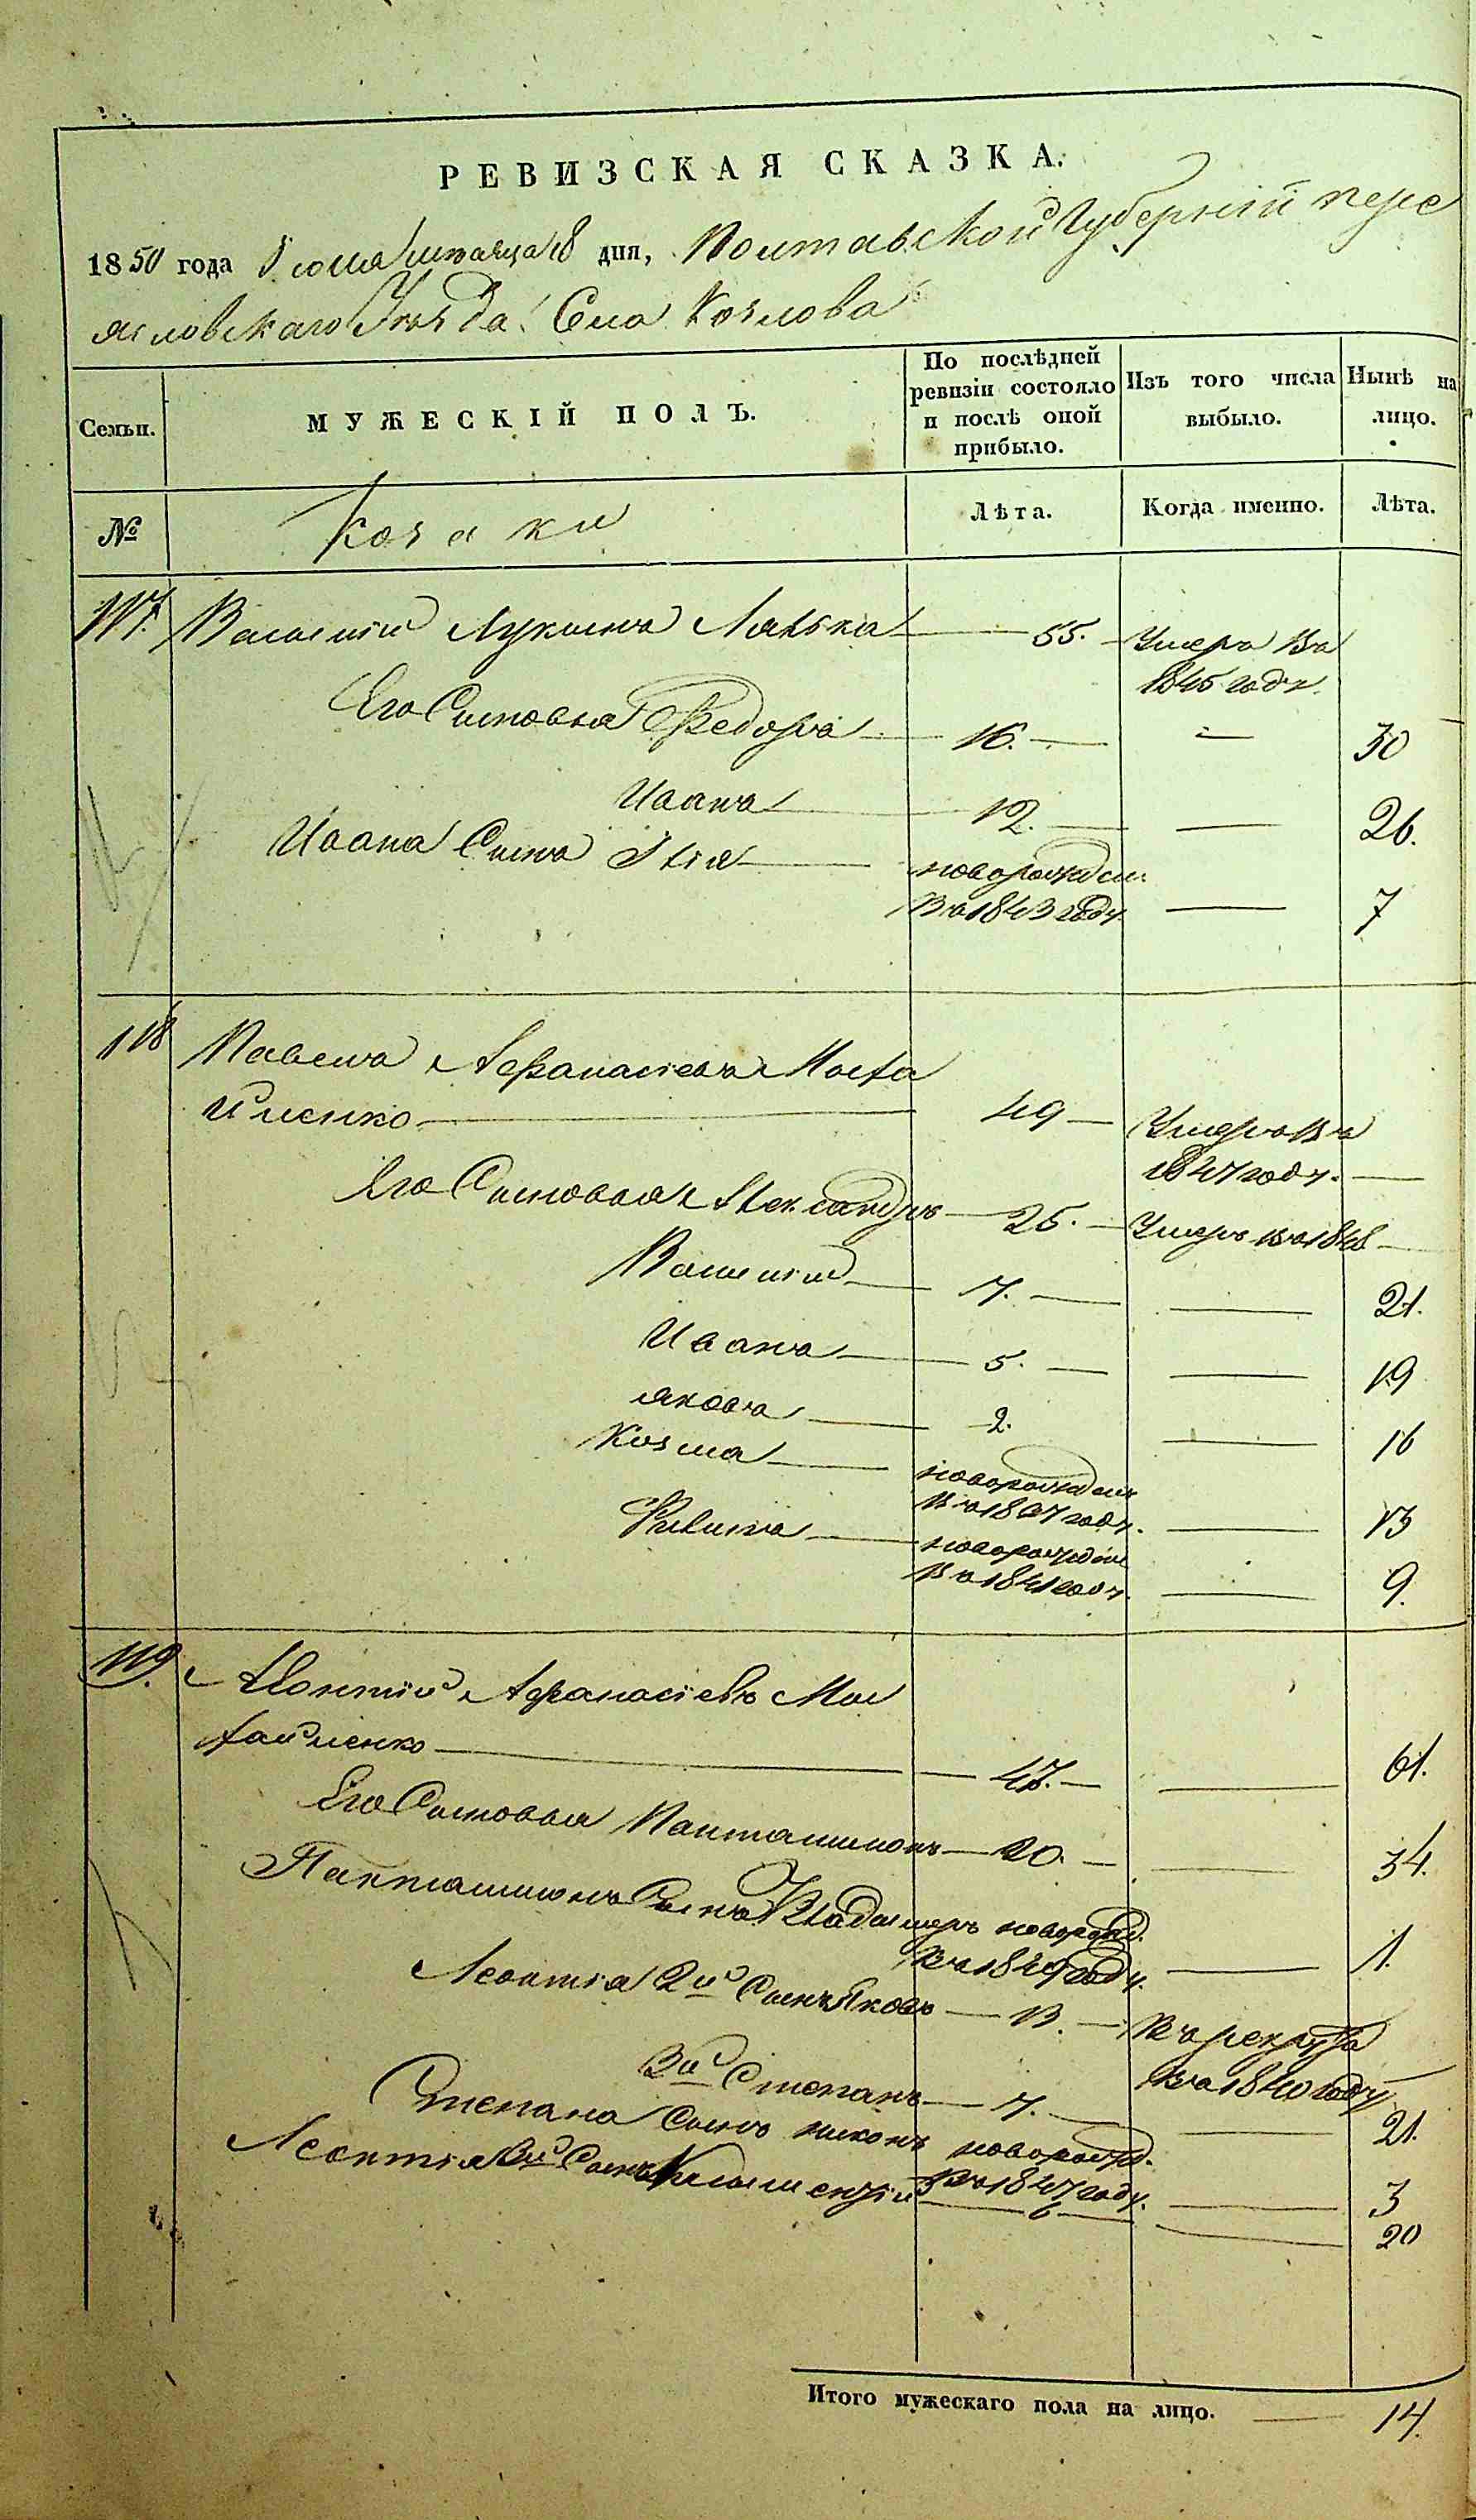 РЕВИЗСКАЯ СКАЗКА.
1850 года Июля месяца 18 дня, Полтавской Губерніи пере
яславскаго Уезда Села Козлова
Семьи.
МУЖЕСКІЙ ПОЛЪ.
По послѣдней ревизіи состояло и послѣ оной прибыло.
Изъ того числа выбыло.
Нынѣ на лицо.
№
Козаки
Лѣта.
Когда именно.
Лѣта.
117. Василій Лукинъ 55. Умеръ въ
1845 году.
Его Сыновья Федоръ 16. 30
Иванъ 12. 26.
Ивана Сынъ новорожден:
въ 1843 году. 7
118 Павелъ Афанасіевъ Миха
йленко 49 Умеръ въ
1847 году.
Его Сыновья Александръ 25. Умеръ въ 1848
Василій 7. 21.
Иванъ 5. 19
Яковъ 2. 16
Козма новорожден
въ 1837 году. 13
новорожден
въ 1841 году. 9.
119. Леонтій Афанасіевъ Ми
хайленко 47. 61.
Его Сыновья Пантелимонъ 20. 34.
Пантелимона Сынъ Владимеръ новорожд.
въ 1849 году. 1.
Леонтія 2й Сынъ Яковъ 13. Въ рекруты
въ 1840 году
3й Степанъ 7. 21.
Степана Сынъ новорожд.
въ 1847 году. 3
Леонтія Сынъ 6 20
Итого мужескаго пола на лицо. 14.